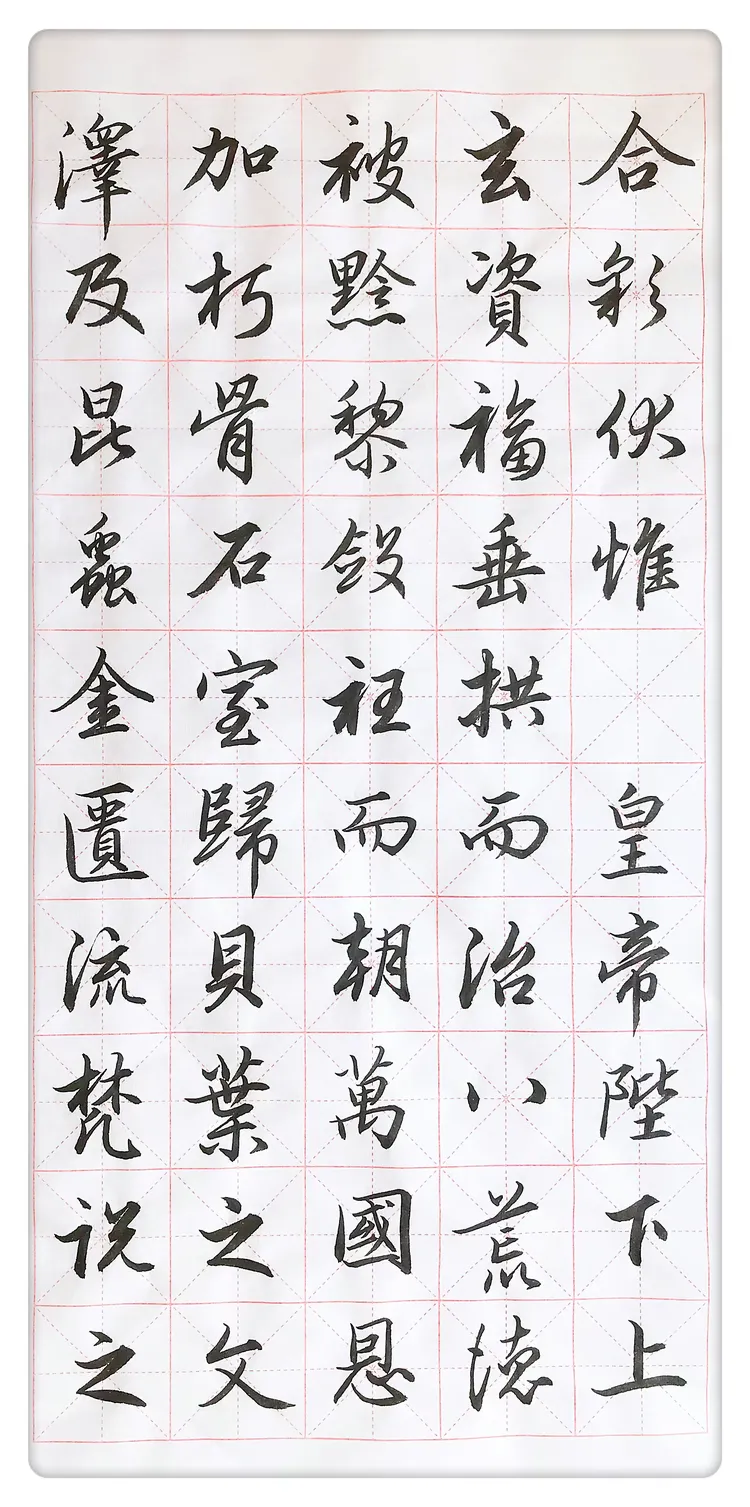 合彩伏惟 皇帝陛下上
玄資福垂拱而治八荒德
被黔黎斂衽而朝萬國恩
加朽骨石室歸貝葉之文
澤及昆蟲金匱流梵説之